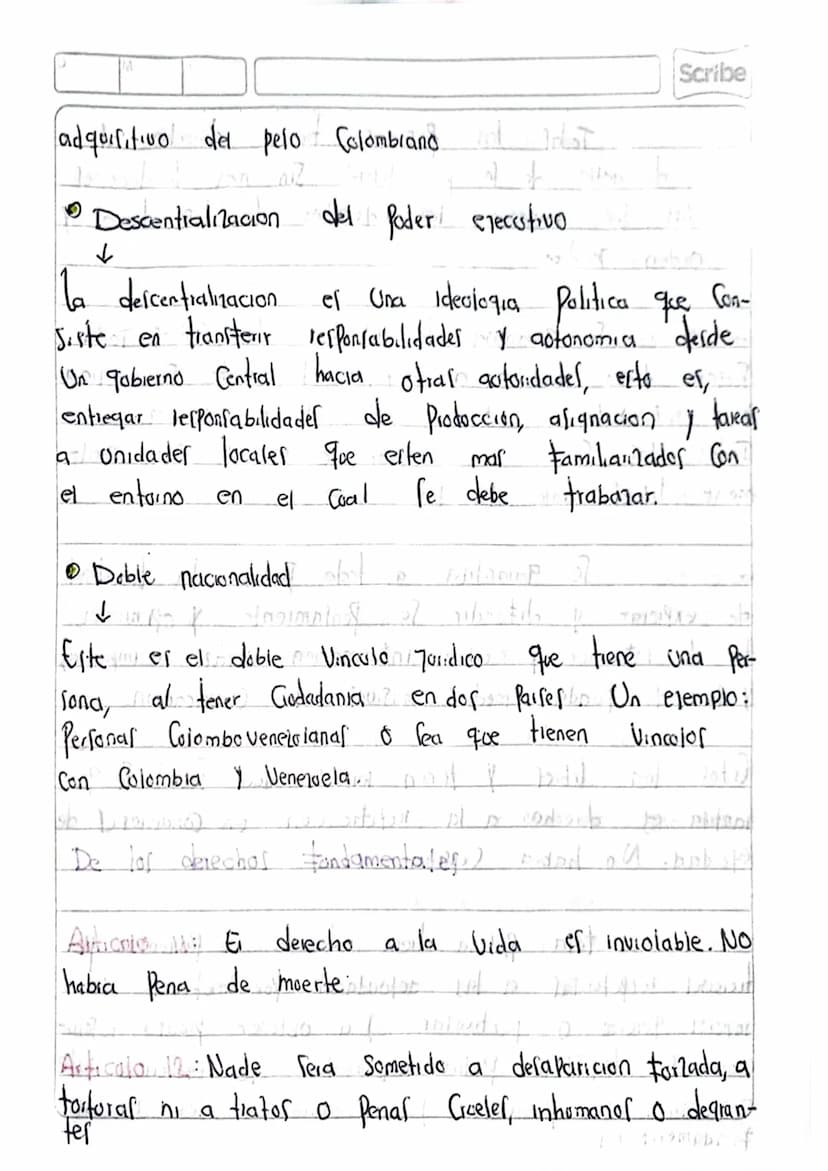 Scribe
adquisitivo del peso Colombiano
Descentralizacion del Poder ejecutivo
↓
la descentralizacion es una Ideologia Politica que Con-
siste en transferir responsabilidades y autonomia desde
Un gobierno Central hacia otras autoridades, esto es,
entregar responsabilidades de Produccion, asignacion y tareas
a unidades locales que esten mas familiarizados Con
el entorno en el Cual se debe trabajar.
Doble nacionalidad
↓
Este es el doble Vinculo Juridico que tiene una Per-
sona, al tener Ciudadania en dos Paises. Un ejemplo:
Personas Colombo venezolanas o sea que tienen Vinculos
Con Colombia y Venezuela.
De los derechos fundamentales
Articulo 11: El derecho a la Vida es inviolable. NO
habra Pena de muerte.
Articulo 12: Nade sera Sometido a desaparicion forzada, a
torturas ni a tratos o Penas Crueles, inhumanos o degran-
tes